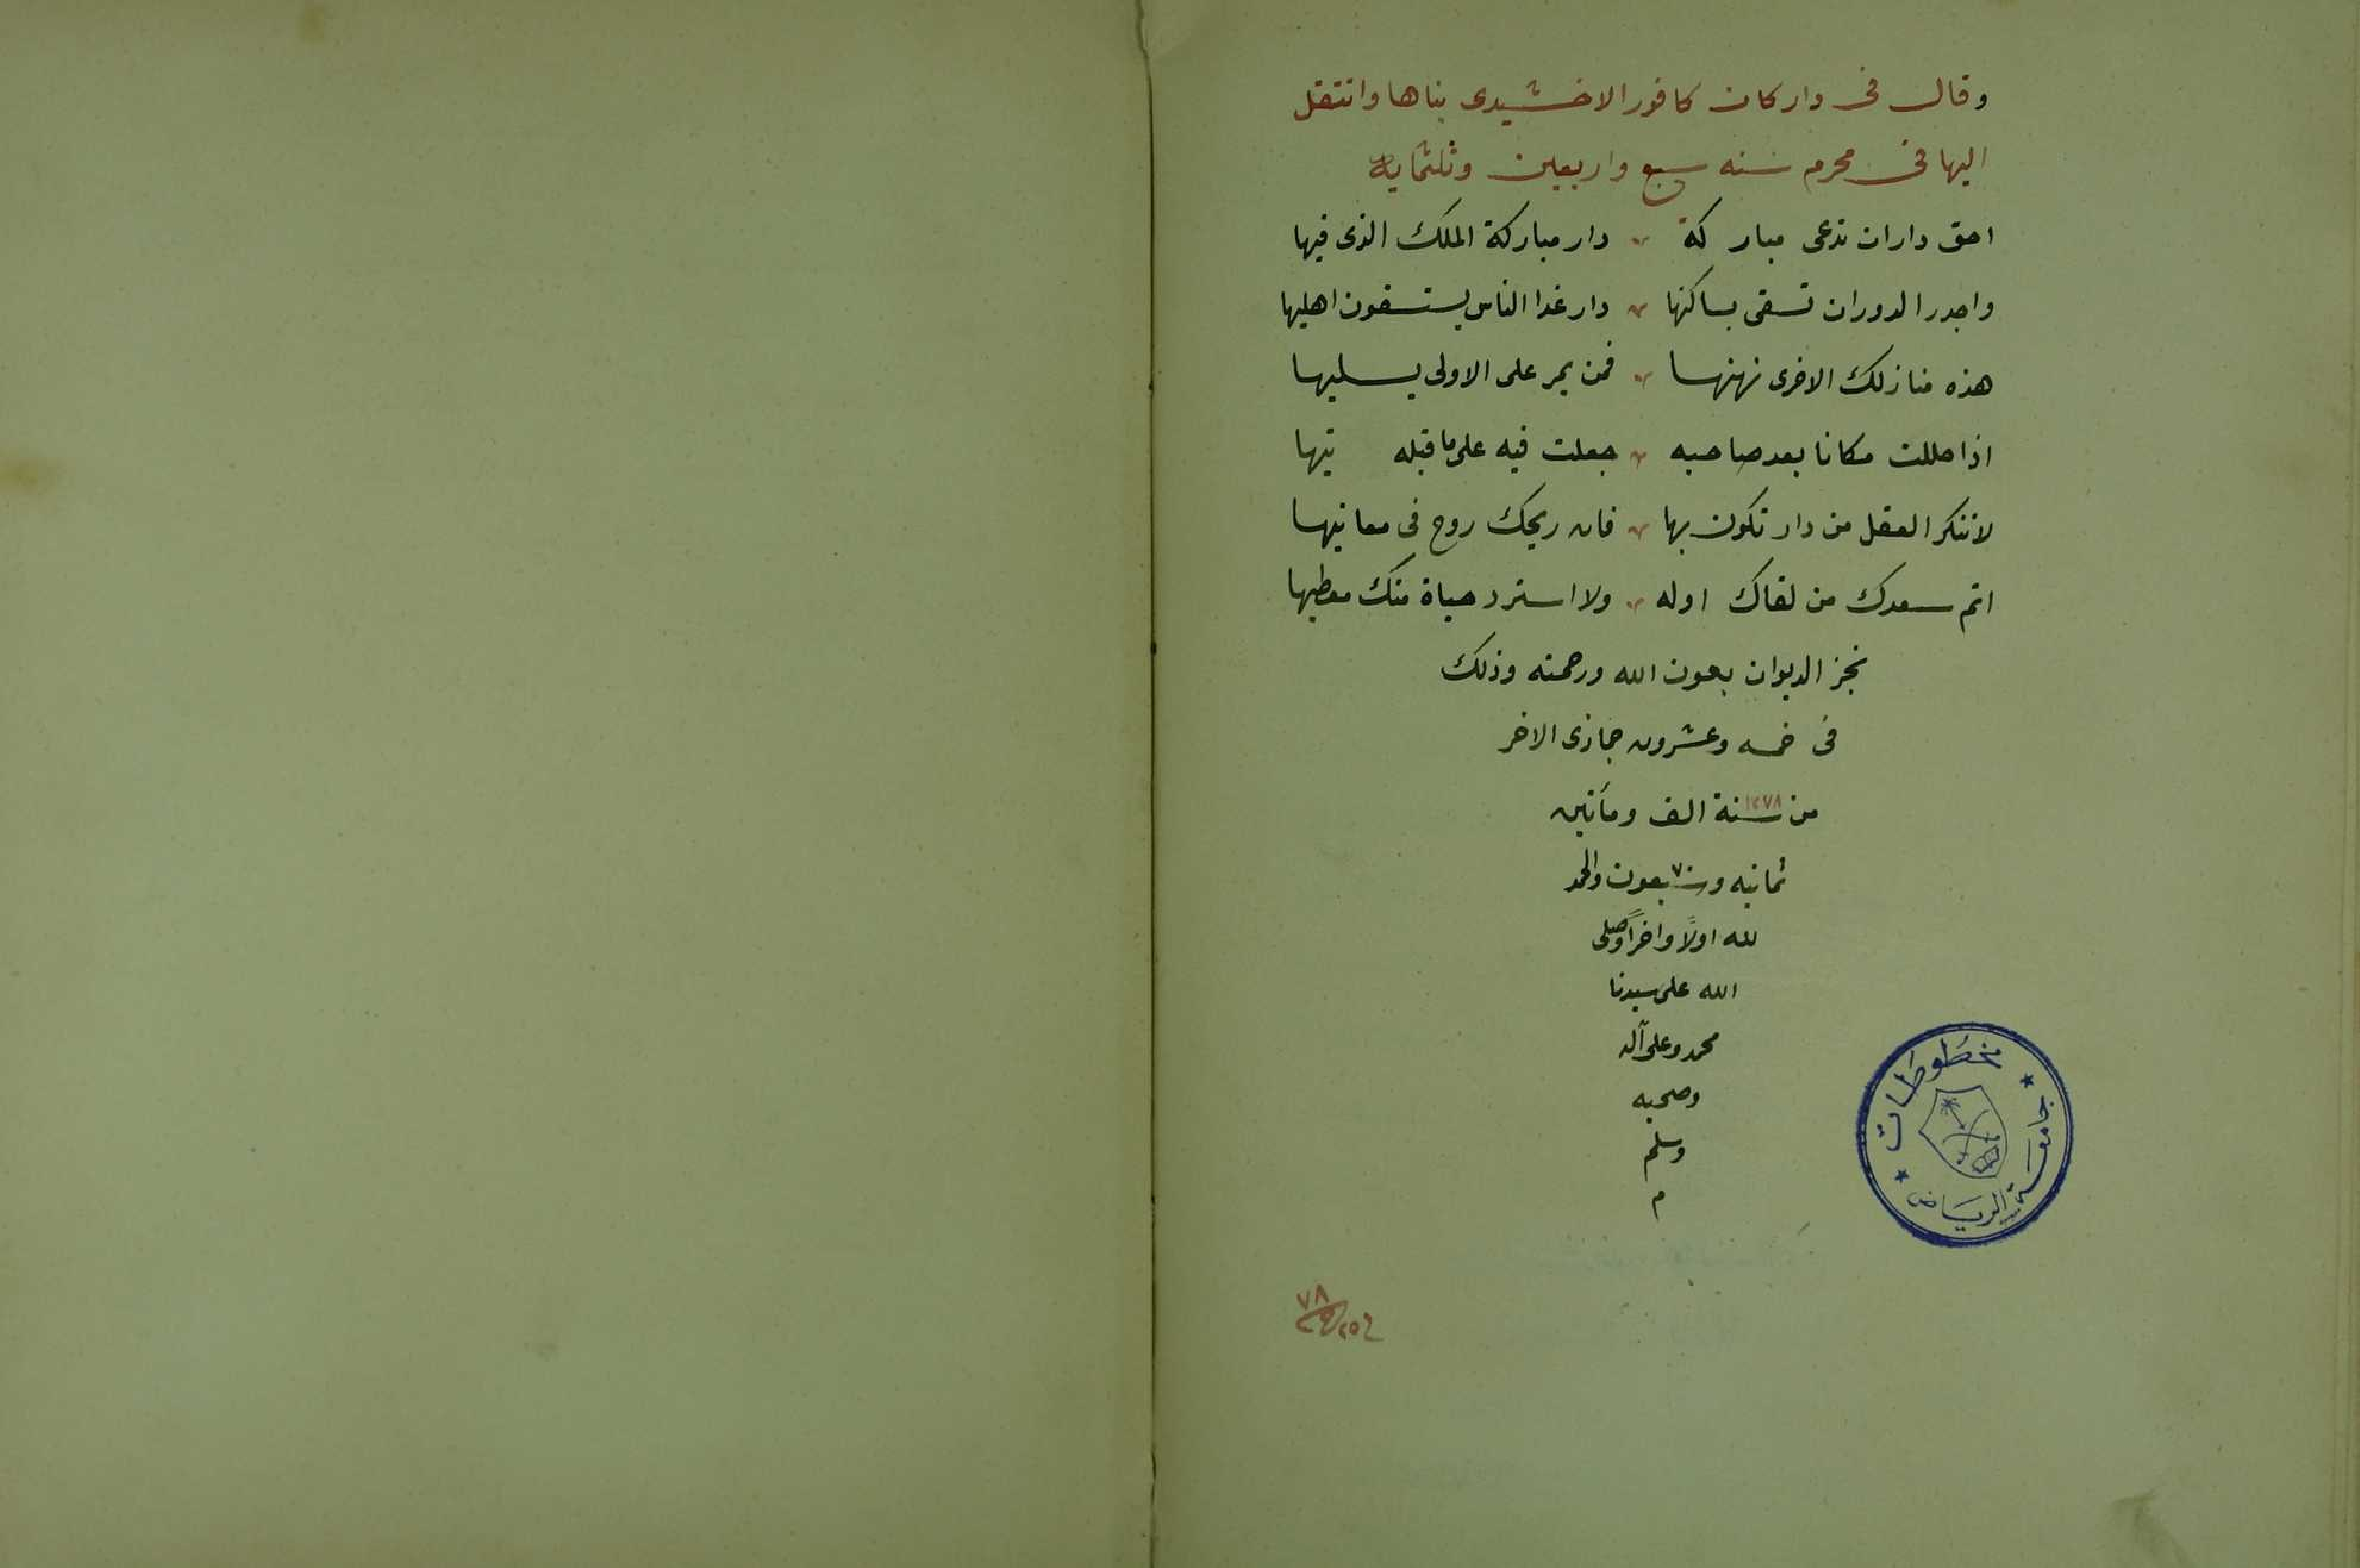 وقال فى دار كان كافور الاخشيدى بناها وانتقل
اليها فى محرم سنه سبع واربعين وثلثمايه
احق داران تدعى مباركة دار مباركة الملك الذى فيها
واجدر الدوران تسقى بساكنها دار غدا الناس يستسقون اهليها
هذه منازلك الاخرى نهنها فمن يمر على الاولى يسليها
اذا حللت مكانا بعد صاحبه جعلت فيه على ما قبله تيها
لاتنكر العقل من دار تكون بها فان ريحك روح فى معانيها
اتم سعدك من لقاك اوله ولا استرد حياة منك معطيها
نجز الديوان بعون الله ورحمته وذلك
فى خمسه وعشرون جمازى الاخر
من سنة ١٢٧٨ الف ومأتين
ثمانيه وسبعون والحمد
لله اولاً واخراً وصلى
الله على سيدنا
محمد وعلى آله
وصحبه
وسلم
م
مخطوطات
جامعة الرياض
٧٨